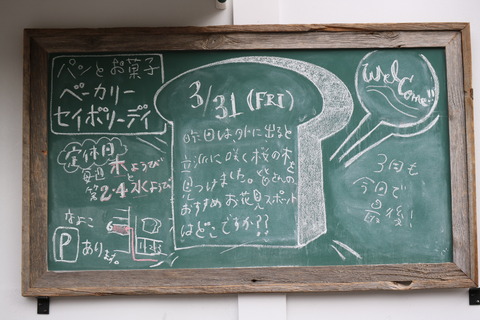 パンとお菓子
ベーカリー
セイボリーデイ
定休日
毎週 木ようびと
第2・4 水ようび
なよこ
P あります。
3/31 (FRI)
昨日は、外に出ると
立派に咲く桜の木を
見つけました。皆さんの
おすすめお花見スポット
はどこですか??
Welcome!!
3月も
今日で
最後!